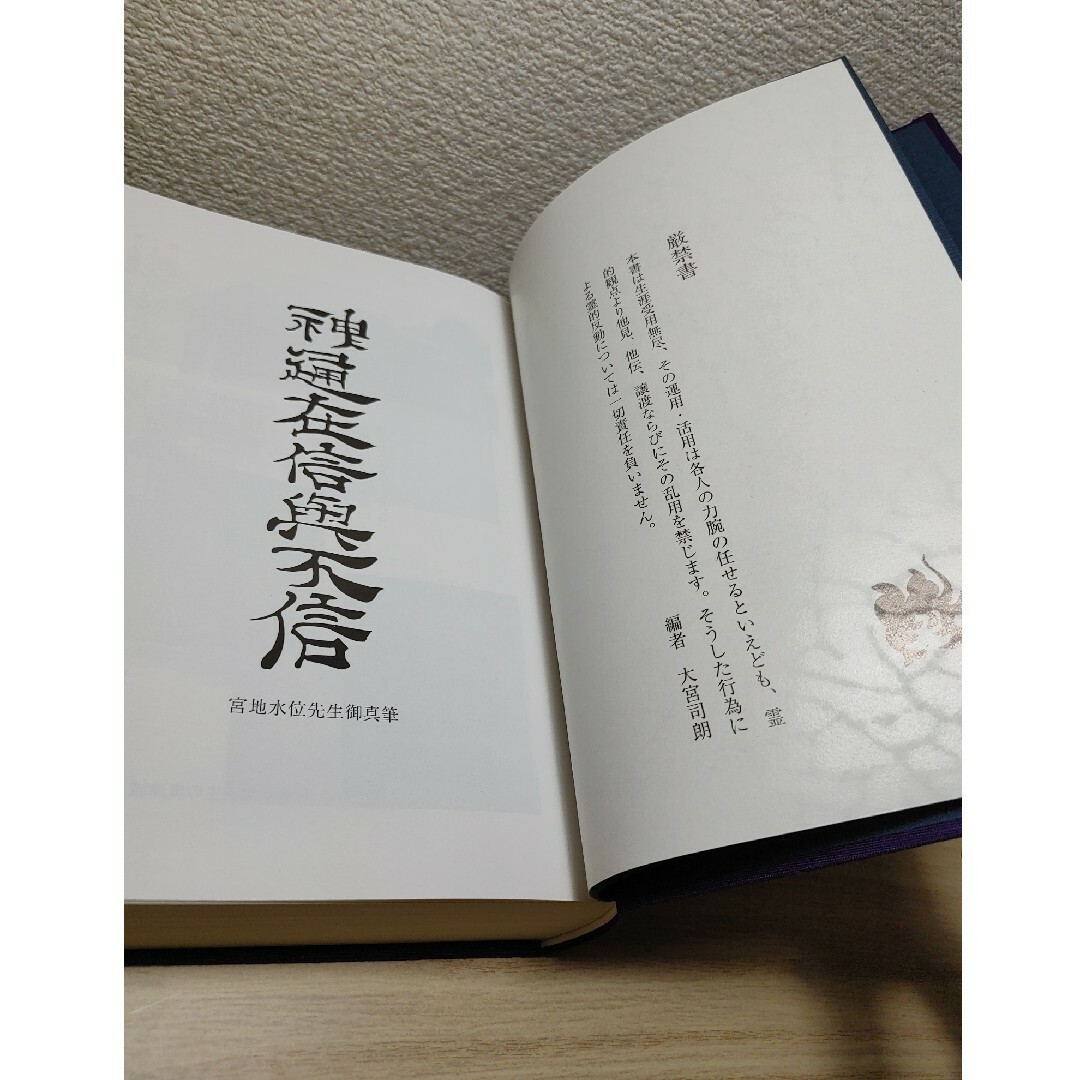 厳禁書
本書は生涯受用無尽、その運用・活用は各人の力腕の任せるといえども、霊
的観点より他見、他伝、譲渡ならびにその乱用を禁じます。そうした行為に
よる霊的反動については一切責任を負いません。
編者 大宮司朗
神通在信與不信
宮地水位先生御真筆